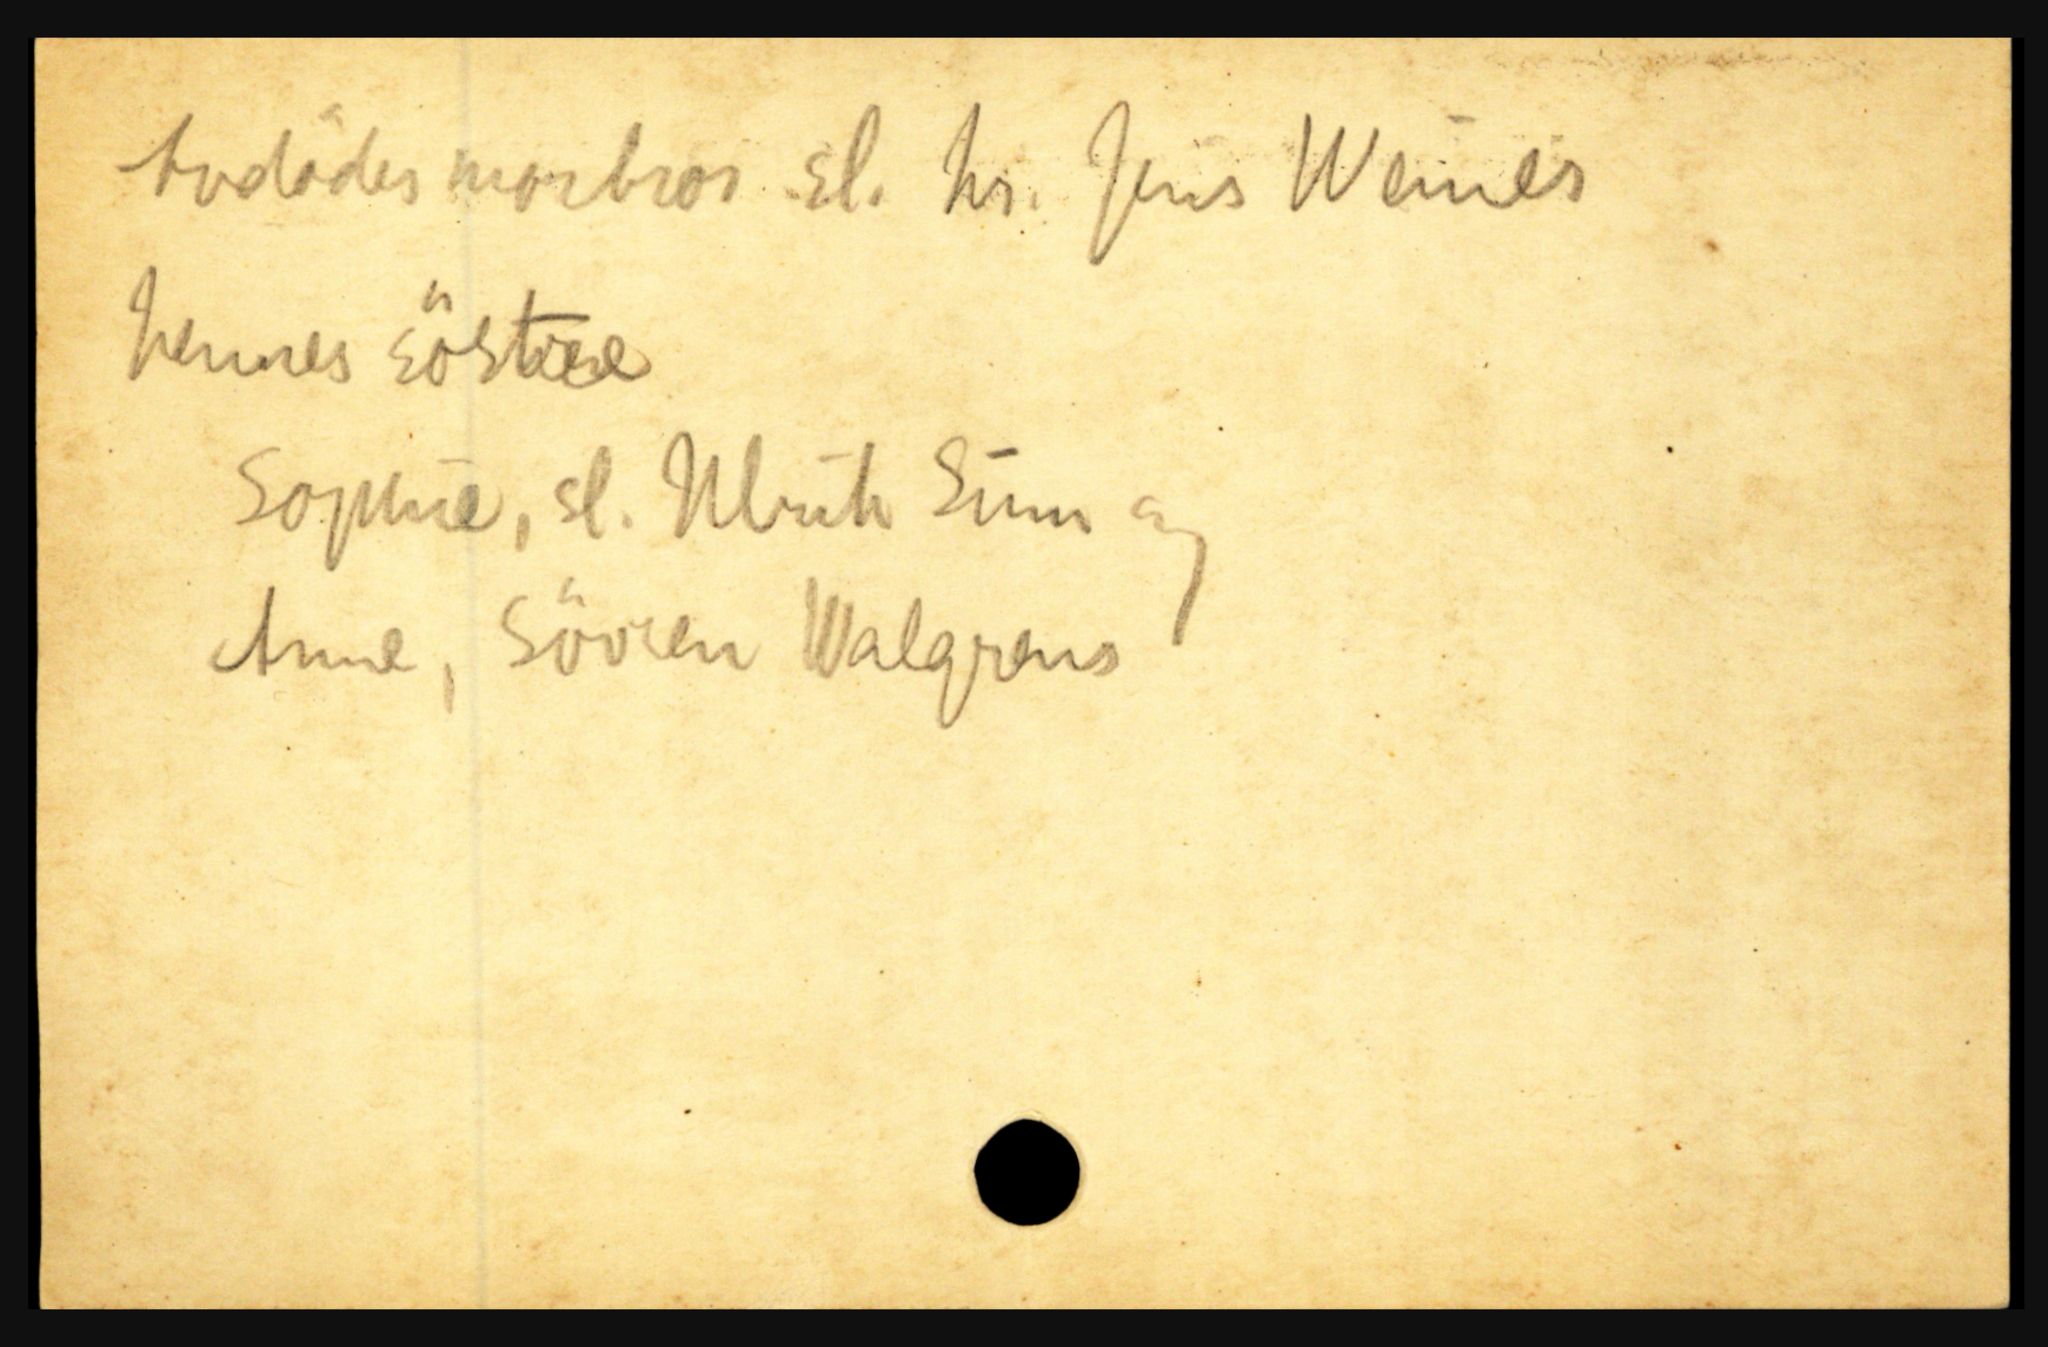 Avdödes morbror sl. hr. Jens Weines
hennes söstre
Sophie, sl. Ulrich Sinn og
Anne, Sövren Walgrens